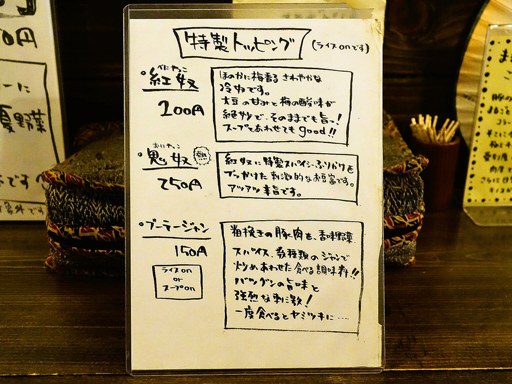 特製トッピング (ライスonです)
べにやっこ
・紅奴
200円
ほのかに梅香る さわやかな
冷奴です。
大豆の甘みと梅の酸味が
絶妙で、そのままでも旨し!
スープとあわせてもgood!!
おにやっこ
・鬼奴
250円
紅奴に特製スパイシーそぼろを
ぶっかけた刺激的なお豆富です。
アツアツ旨です。
・ブーテージャン
150円
ライスon
or
スープon
粗挽きの豚肉を、香味野菜
スパイス、数種類のジャンで
炒めあわせた食べる調味料!!
バツグンの旨味と
強烈な刺激!
一度食べるとヤミツキに…
0円
ーに
夏野菜